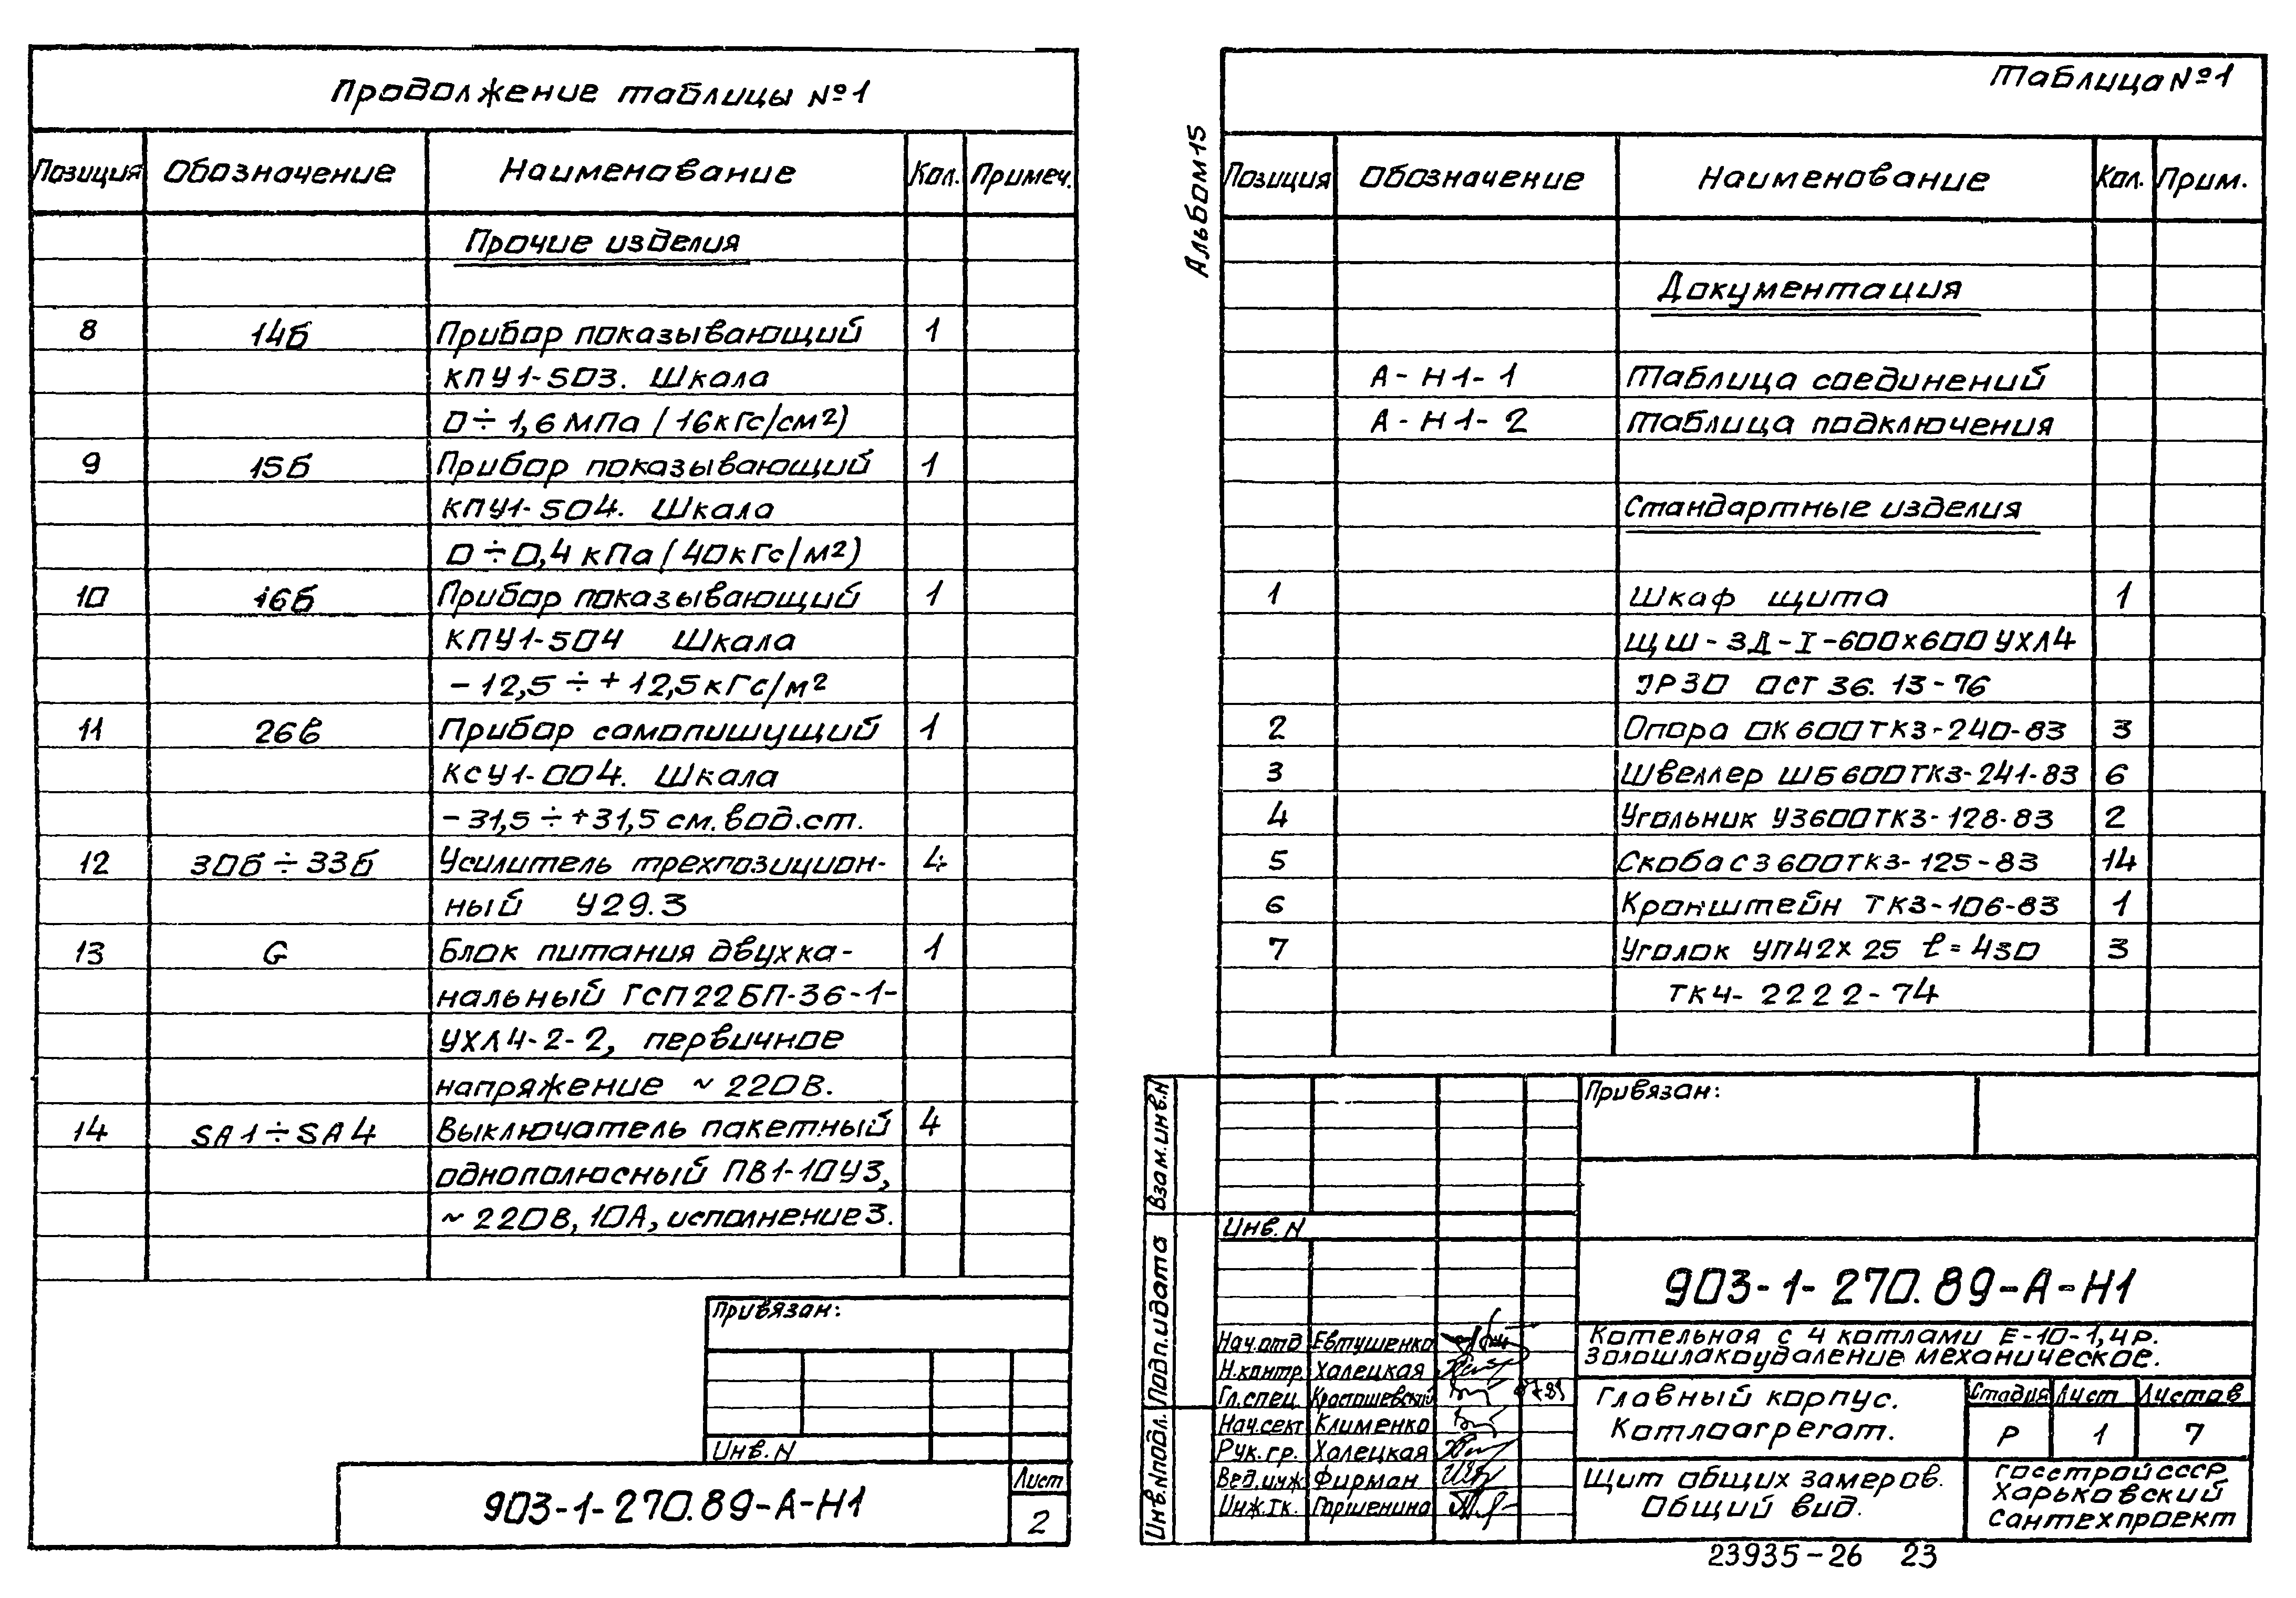 Продолжение таблицы №1
Позиция Обозначение Наименование Кол. Примеч.
Прочие изделия
8 14б Прибор показывающий 1
КПУ1-503. Шкала
0÷1,6 МПа (16кГс/см²)
9 15б Прибор показывающий 1
КПУ1-504. Шкала
0÷0,4 кПа (40кГс/м²)
10 16б Прибор показывающий 1
КПУ1-504 Шкала
-12,5÷+12,5кГс/м²
11 26в Прибор самопишущий 1
КСУ1-004. Шкала
-31,5÷+31,5 см.вод.ст.
12 30б÷33б Усилитель трехпозицион- 4
ный У29.3
13 G Блок питания двухка- 1
нальный ГСП22БП-36-1-
УХЛ4-2-2, первичное
напряжение ~220В.
14 SA1÷SA4 Выключатель пакетный 4
однополюсный ПВ1-10У3,
~220В, 10А, исполнение3.
Привязан:
Инв.N
903-1-270.89-А-Н1
Лист
2
Альбом 15
Таблица №1
Позиция Обозначение Наименование Кол. Прим.
Документация
А-Н1-1 Таблица соединений
А-Н1-2 Таблица подключения
Стандартные изделия
1 Шкаф щита 1
ЩШ-ЗД-I-600х600 УХЛ4
IР30 ОСТ 36.13-76
2 Опора ОК600ТК3-240-83 3
3 Швеллер ШБ600ТК3-241-83 6
4 Угольник У3600ТК3-128-83 2
5 Скоба С3600ТК3-125-83 14
6 Кронштейн ТК3-106-83 1
7 Уголок УП42х25 ℓ=430 3
ТК4-2222-74
Привязан:
Инв.N
903-1-270.89-А-Н1
Котельная с 4 котлами Е-10-1,4Р.
Золошлакоудаление механическое.
Нач.отд Евтушенко
Н.контр. Халецкая
Гл.спец. Красташевский
Нач.сект Клименко
Рук.гр. Халецкая
Вед.инж Фирман
Инж.Iк. Паршенина
Главный корпус.
Котлоагрегат.
Стадия Лист Листов
Р 1 7
Щит общих замеров.
Общий вид.
Госстрой СССР
Харьковский
Сантехпроект
Взам.инв.N
Подп.и дата
Инв.Nподл.
23935-26 23